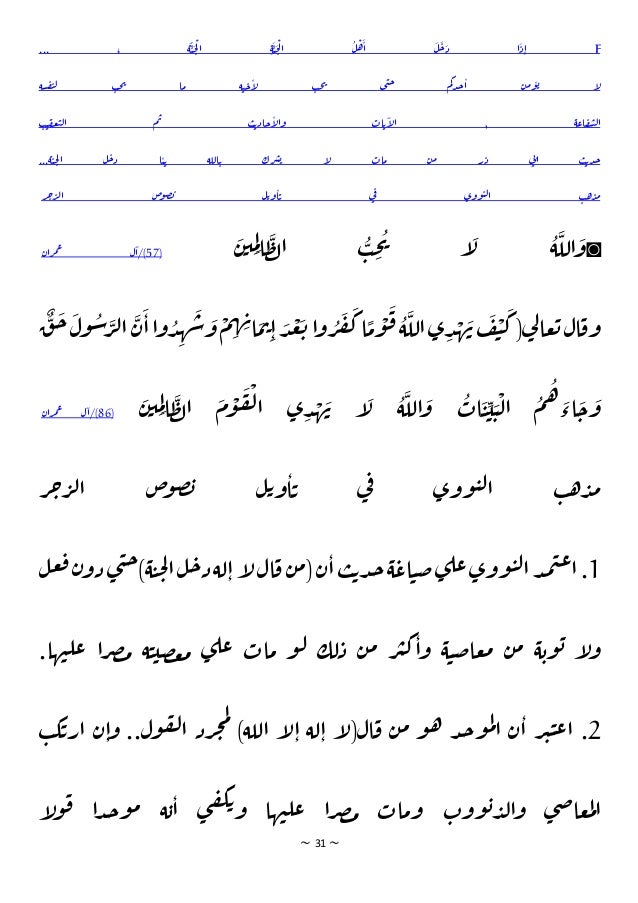 F إِذَا دَخَلَ أَهْلُ الْجَنَّةِ الْجَنَّةَ ، ...
لا يؤمن أحدكم حتى يحب لأخيه ما يحب لنفسه
الشفاعة , الآيات والأحاديث ثم التعقيب
حديث أبي ذر من مات لا يشرك بالله شيئا دخل الجنة...
مذهب النووي في تأويل نصوص الزجر
◙وَاللَّهُ لَا يُحِبُّ الظَّالِمِينَ (57)/آل عمران
وقال تعالي(كَيْفَ يَهْدِي اللَّهُ قَوْمًا كَفَرُوا بَعْدَ إِيمَانِهِمْ وَشَهِدُوا أَنَّ الرَّسُولَ حَقٌّ
وَجَاءَهُمُ الْبَيِّنَاتُ وَاللَّهُ لَا يَهْدِي الْقَوْمَ الظَّالِمِينَ (86)/آل عمران
مذهب النووي في تأويل نصوص الزجر
1. اعتمد النووي علي صياغة حديث أن (من قال لا إله دخل الجنة)حتي دون فعل
ولا توبة من معاصية وأكثر من ذلك ولو مات علي معصيته مصرا عليها.
2. اعتبر أن الموحد هو من قال(لا إله إلا الله) لمجرد القول.. وإن ارتكب
المعاصي والذنووب ومات مصرا عليها ويكفي أنه موحدا قولا
~ 31 ~